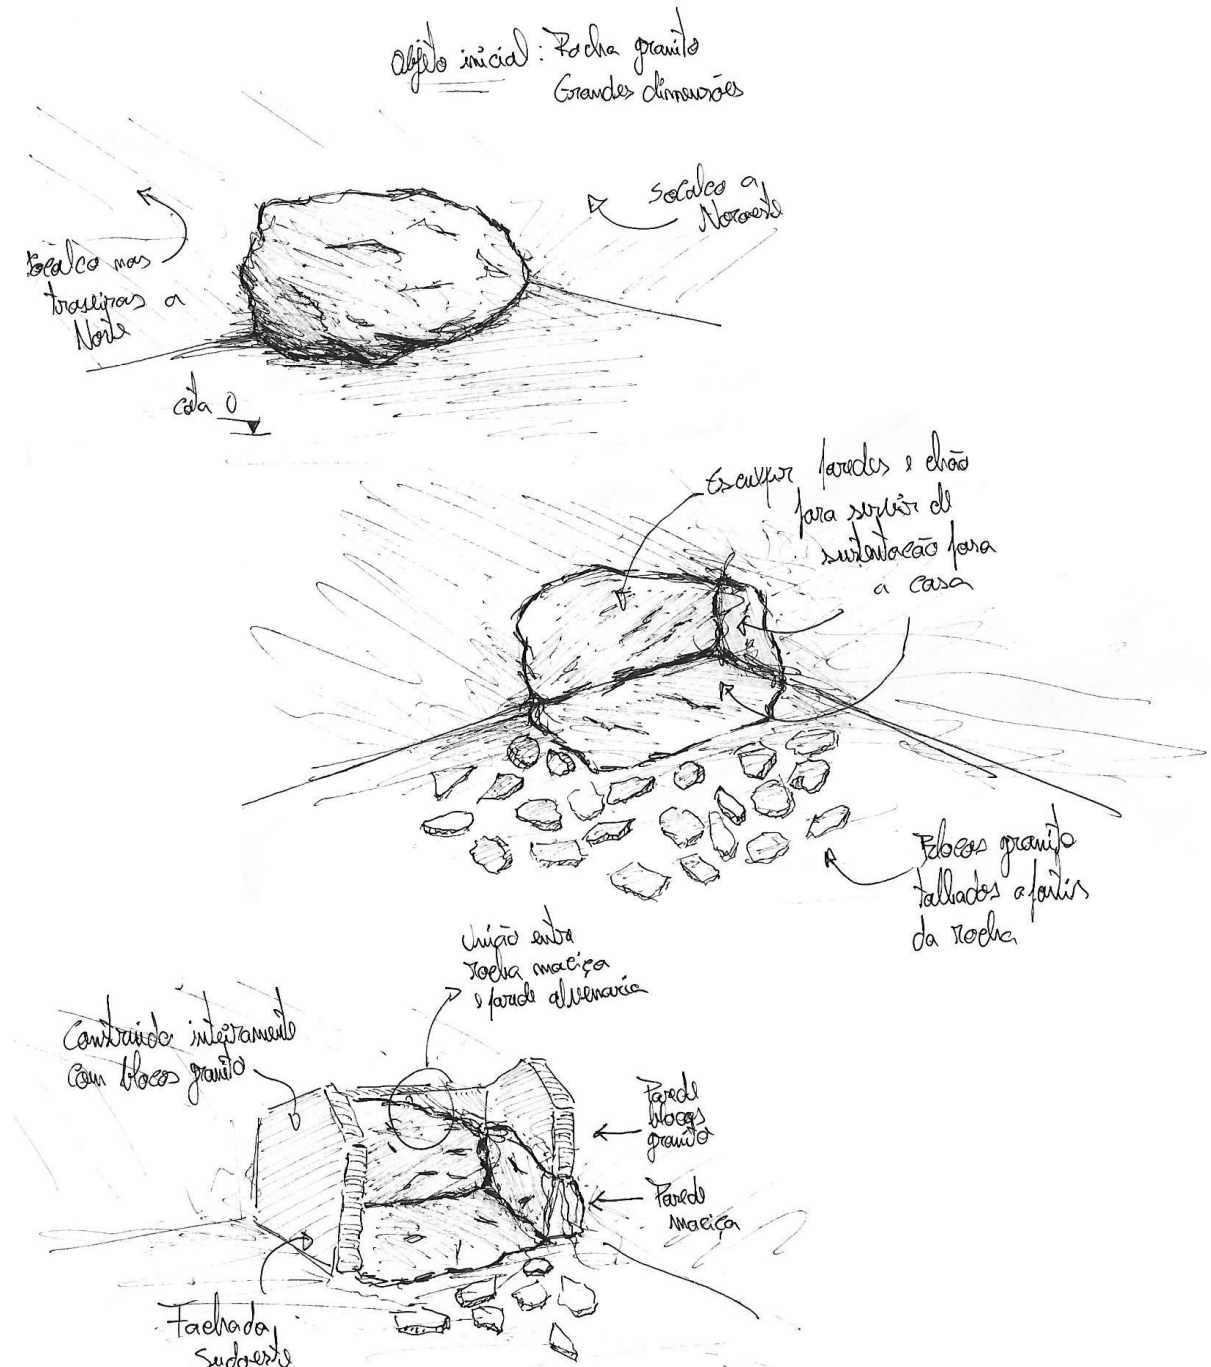 Objeto inicial: Rocha granito
Grandes dimensões
Socalco a
Noroeste
Socalco nas
traseiras a
Norte
cota 0
Esculpir paredes e chão
para servir de
sustentação para
a casa
Blocos granito
talhados a partir
da rocha
União entre
rocha maciça
e parede alvenaria
Construída inteiramente
com blocos granito
Parede
blocos
granito
Parede
maciça
Fachada
Sudoeste